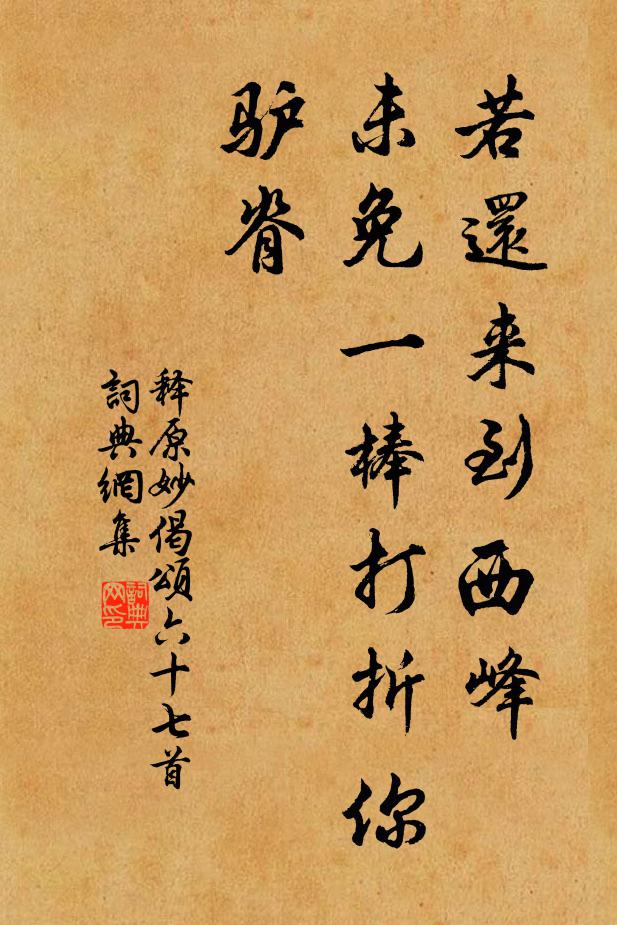 若還来到西峰
未免一棒打折你
驴脊
释原妙偈頌六十七首
詞典網集
詞典
网印